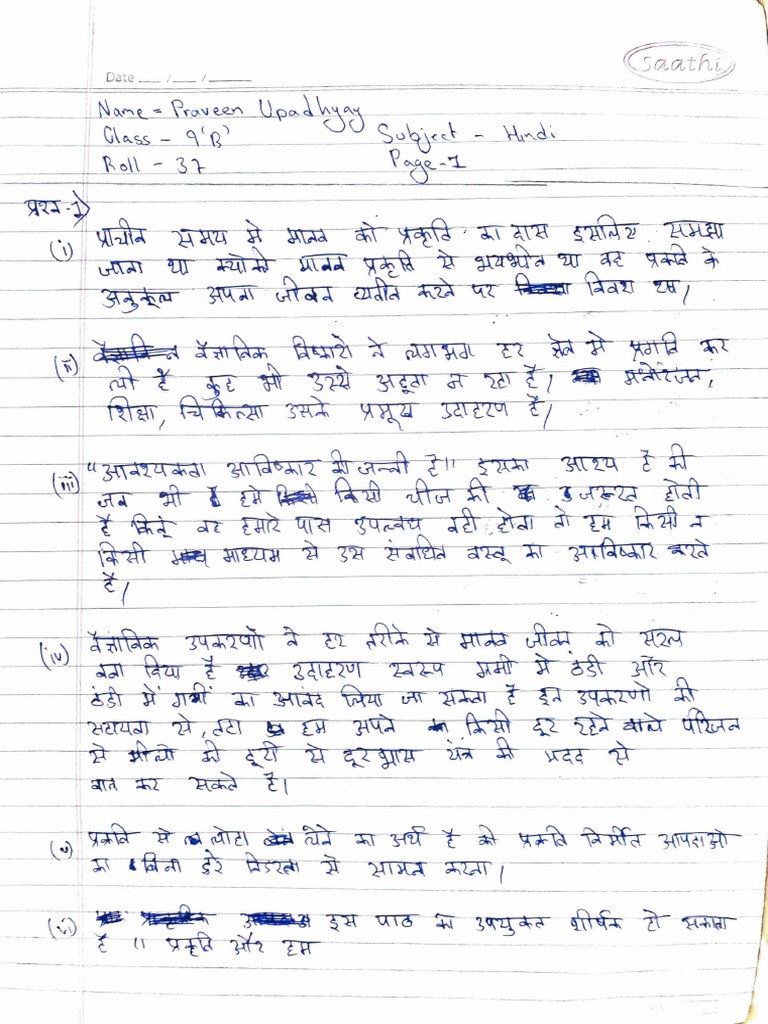 saathi
Date ___/___/_____
Name = Praveen Upadhyay
Class - 9'B'
Subject - Hindi
Roll - 37
Page-1
प्रश्न-1)
(i) प्राचीन समय मे मानव को प्रकृति का दास इसलिए समझा
जाता था क्योकी मानव प्रकृति से भयभीत था वह प्रकति के
अनुकूल अपना जीवन व्यतीत करने पर विवश था।
(ii) वैज्ञानिक विष्कारो ने लगभग हर क्षेत्र मे प्रगति कर
ली है कुछ भी उससे अछूता न रहा है। मनोरंजन,
शिक्षा, चिकित्सा उसके प्रमुख उदाहरण है।
(iii) "आवश्यकता आविष्कार की जन्नी है" इसका आश्य है की
जब भी हमे किसी चीज की जरूरत होती
है किंतू वह हमारे पास उपलब्ध नही होता तो हम किसी न
किसी माध्यम से उस संबंधित वस्तू का आविष्कार करते
है।
(iv) वैज्ञानिक उपकरणो ने हर तरीके से मानव जीवन को सरल
बना दिया है उदाहरण स्वरूप गर्मी मे ठंडी और
ठंडी में गर्मी का आनंद लिया जा सकता है इन उपकरणो की
सहायता से, हम अपने किसी दूर रहने वाले परिजन
से मीलो की दूरी से दूरभास यंत्र की मदद से
बात कर सकते है।
(v) प्रकति से लोहा लेने का अर्थ है की प्रकति निर्मीत आपदाओ
का बिना डरे निडरता से सामना करना।
(vi) इस पाठ का उपयुक्त शीर्षक हो सकता
है " प्रकृति और हम